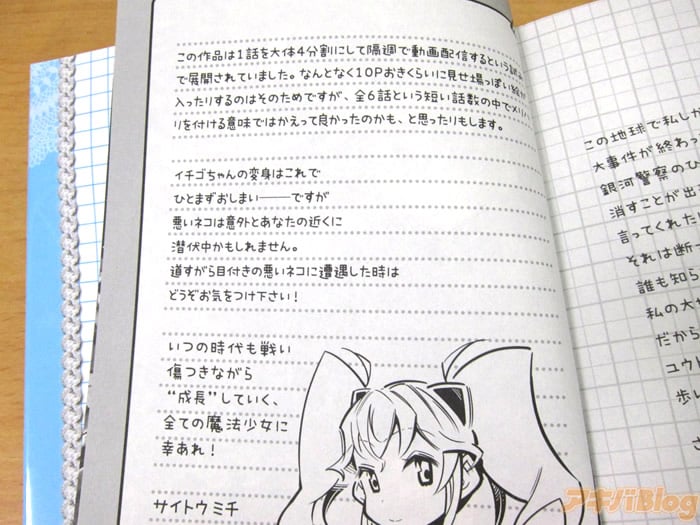 この作品は1話を大体4分割にして隔週で動画配信するという
で展開されていました。なんとなく10Pおきくらいに見せ場っぽい絵が
入ったりするのはそのためですが、全6話という短い話数の中でメリハ
リを付ける意味ではかえって良かったのかも、と思ったりもします。
イチゴちゃんの変身はこれで
ひとまずおしまい―――ですが
悪いネコは意外とあなたの近くに
潜伏中かもしれません。
道すがら目付きの悪いネコに遭遇した時は
どうぞお気をつけ下さい!
いつの時代も戦い
傷つきながら
“成長”していく、
全ての魔法少女に
幸あれ!
サイトウミチ
この地球で私しか
大事件が終わっ
銀河警察のひ
消すことが出
言ってくれた
それは断
誰も知ら
私の大
だから
ユウト
歩い
アキバBlog